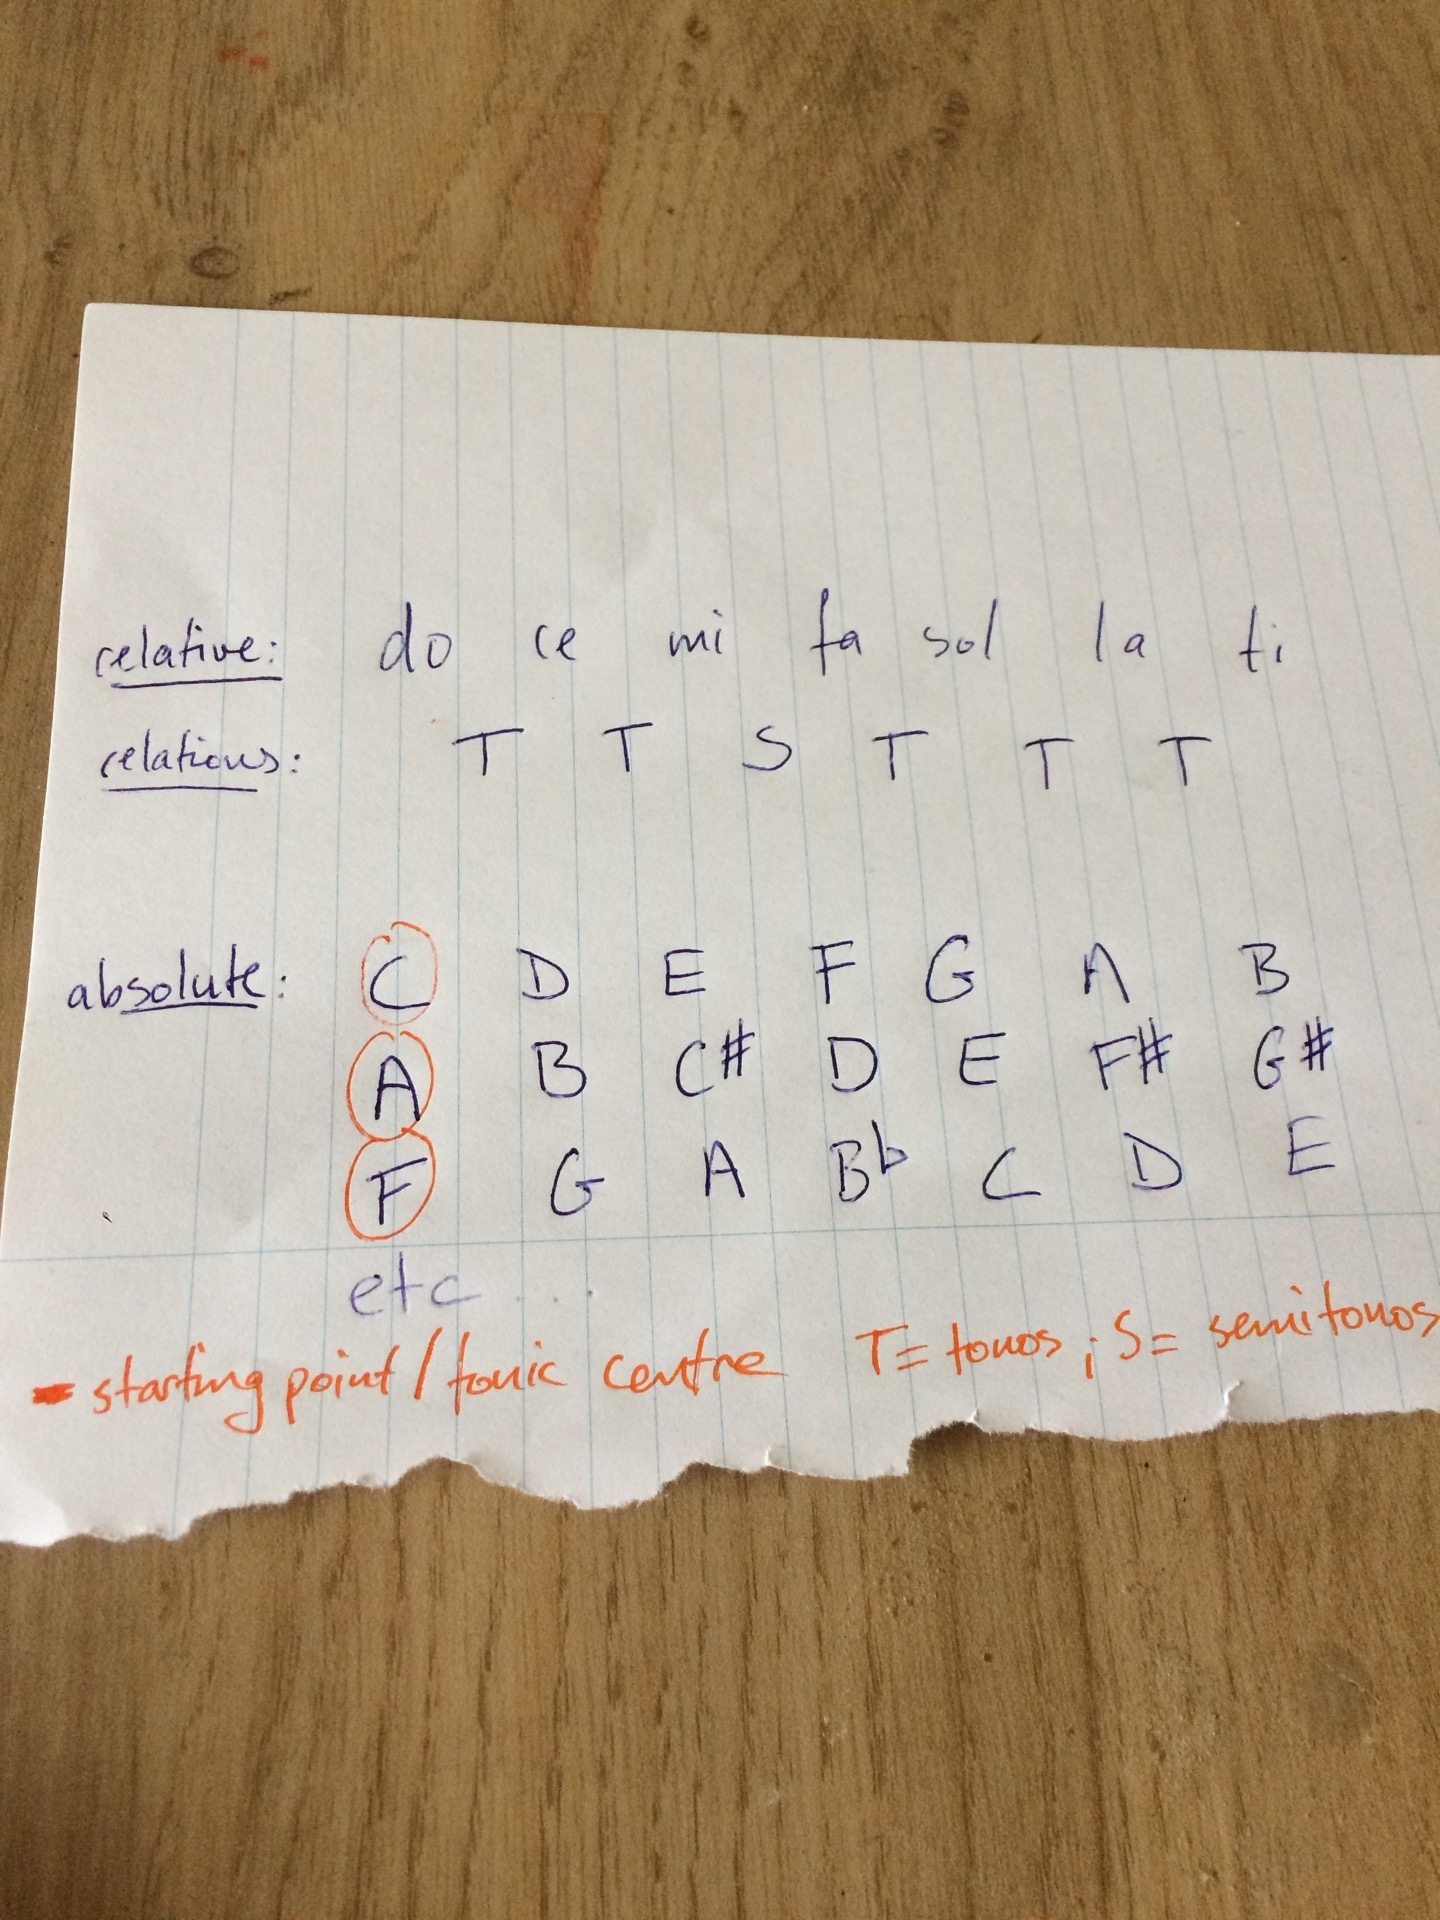 relative: do re mi fa sol la ti
relations: T T S T T T
absolute: C D E F G A B
A B C# D E F# G#
F G A Bb C D E
etc ....
- starting point / tonic centre T= tonos ; S= semitonos